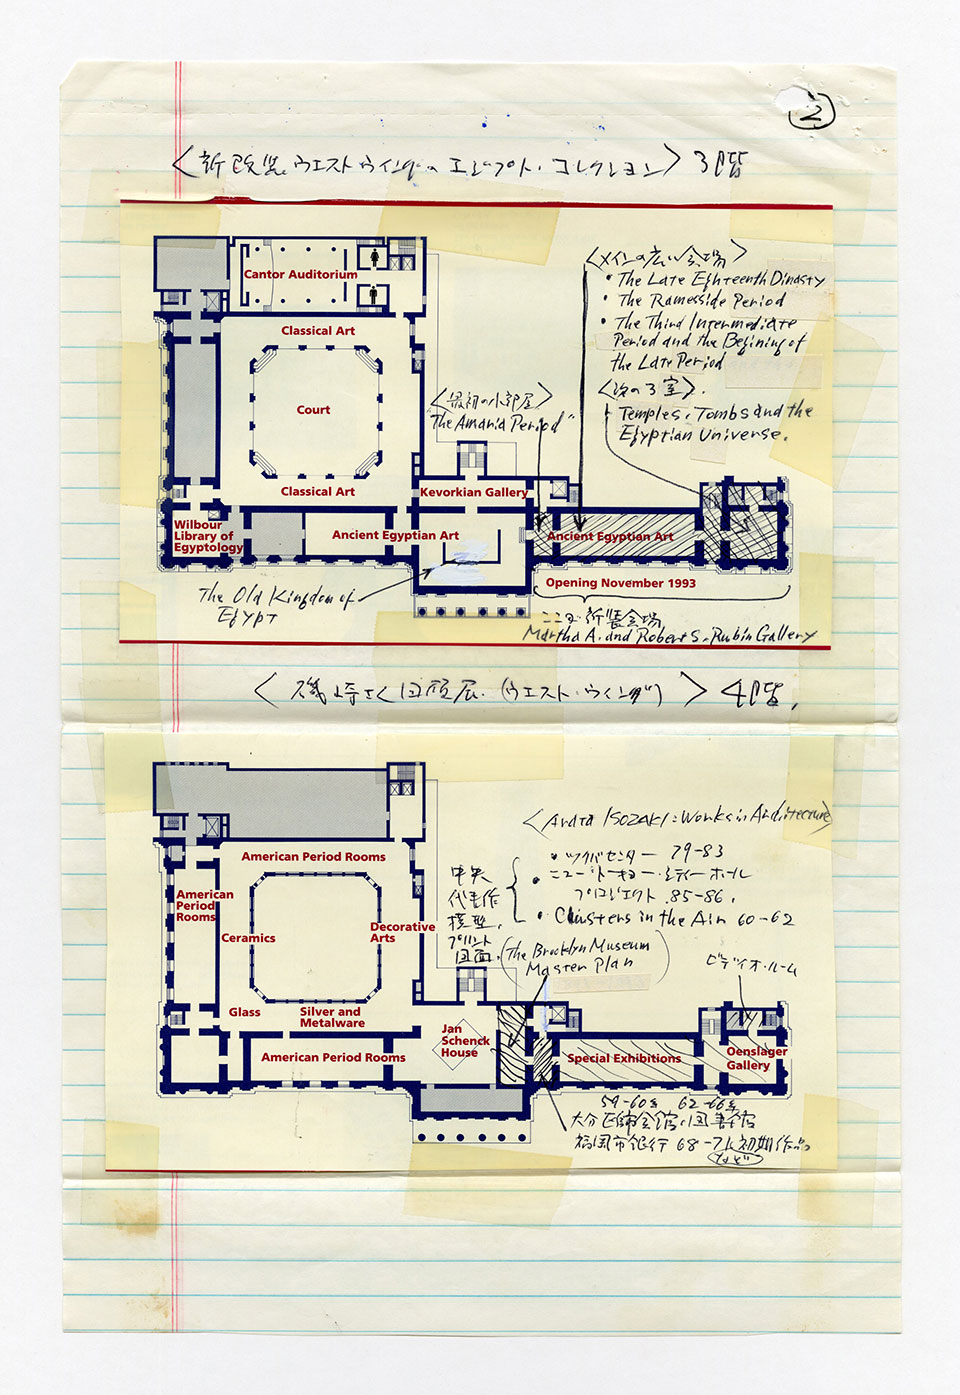 2
<新改装。ウエストウイングのエジプト・コレクション> 3階
Cantor Auditorium
<メインの広い会場>
• The Late Eighteenth Dinasty
• The Ramesside Period
• The Third Intermediate
Period and the Begining of
the Late Period
<次の3室>.
Temples, Tombs and the
Egyptian Universe.
Classical Art
Court
<最初の小部屋>
"The Amarna Period"
Classical Art
Kevorkian Gallery
Wilbour
Library of
Egyptology
Ancient Egyptian Art
Ancient Egyptian Art
Opening November 1993
The Old Kingdom of
Egypt
ここが新装会場
Martha A. and Robert S. Rubin Gallery
<磯崎さく回顧展.(ウエスト・ウイング)> 4階,
<Arata ISOZAKI: Works in Architecture>
• ツクバセンター 79-83
• ニュー・トーキョー・シティーホール
プロジェクト 85-86.
• Clusters in the Air 60-62
中央
代表作
模型,
プリント
図面.
(The Brooklyn Museum
Master Plan)
ビデイオ・ルーム
American Period Rooms
American
Period
Rooms
Ceramics
Decorative
Arts
Glass
Silver and
Metalware
American Period Rooms
Jan
Schenck
House
Special Exhibitions
Oenslager
Gallery
59-60年 62-66年
大分医師会館、図書館
福岡市銀行 68-71 初期作品
など